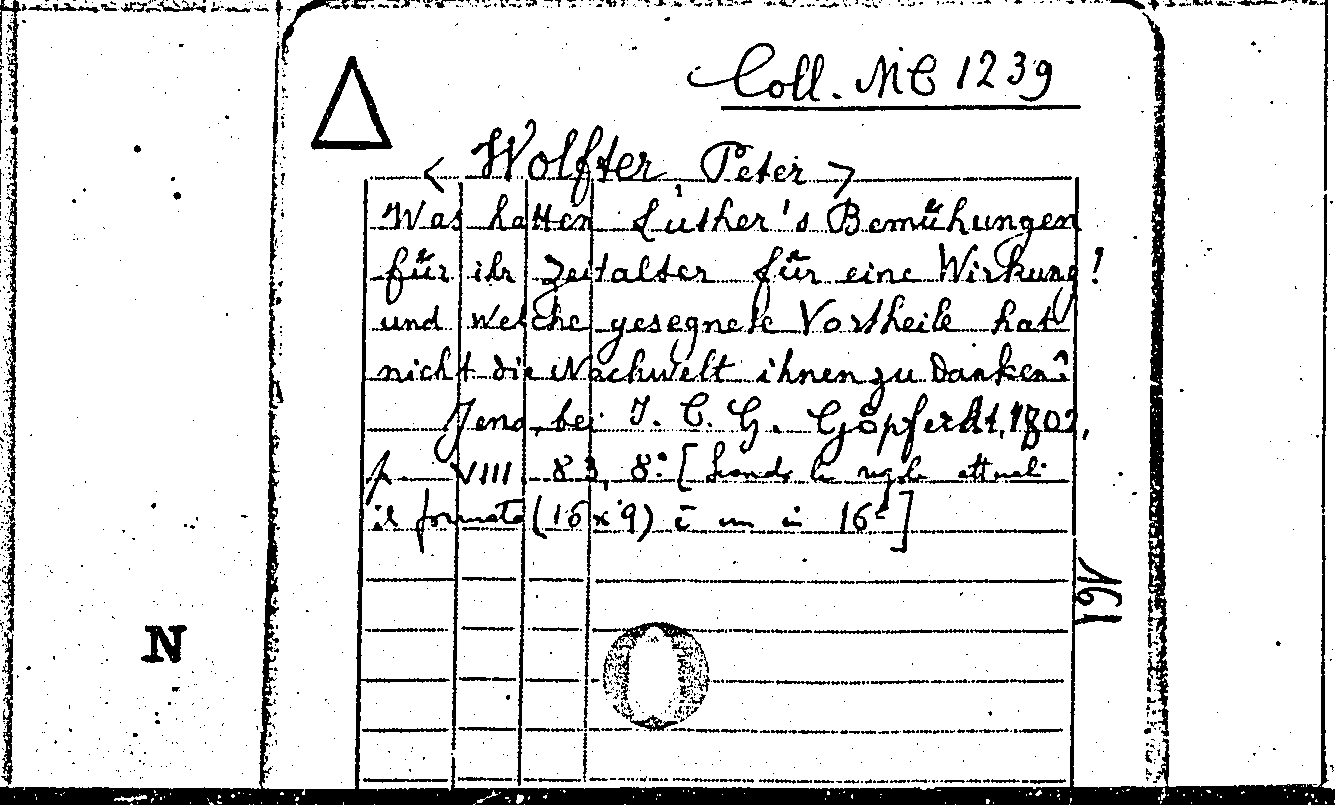 Coll. MC 1239
< Wolfter, Peter >
Was hatten Luther's Bemühungen
für ihr Zeitalter für eine Wirkung!
und welche gesegnete Vortheile hat
nicht die Nachwelt ihnen zu Danken?
Jena, bei I. C. G. Göpferdt, 1802,
p. VIII. 83, 8° [secondo le regole attuali
il formato (16 x 9) è un in 16°]
161
N